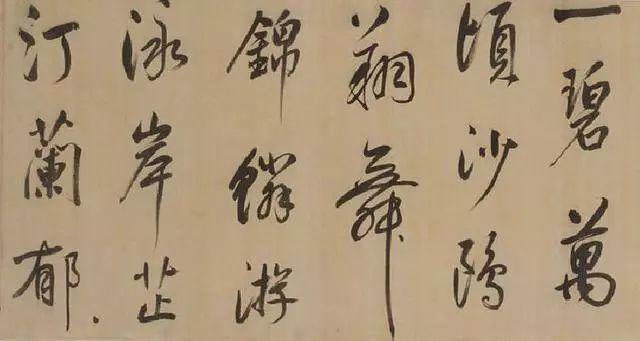 一碧萬
頃沙鷗
翔舞
錦鱗游
泳岸芷
汀蘭郁、